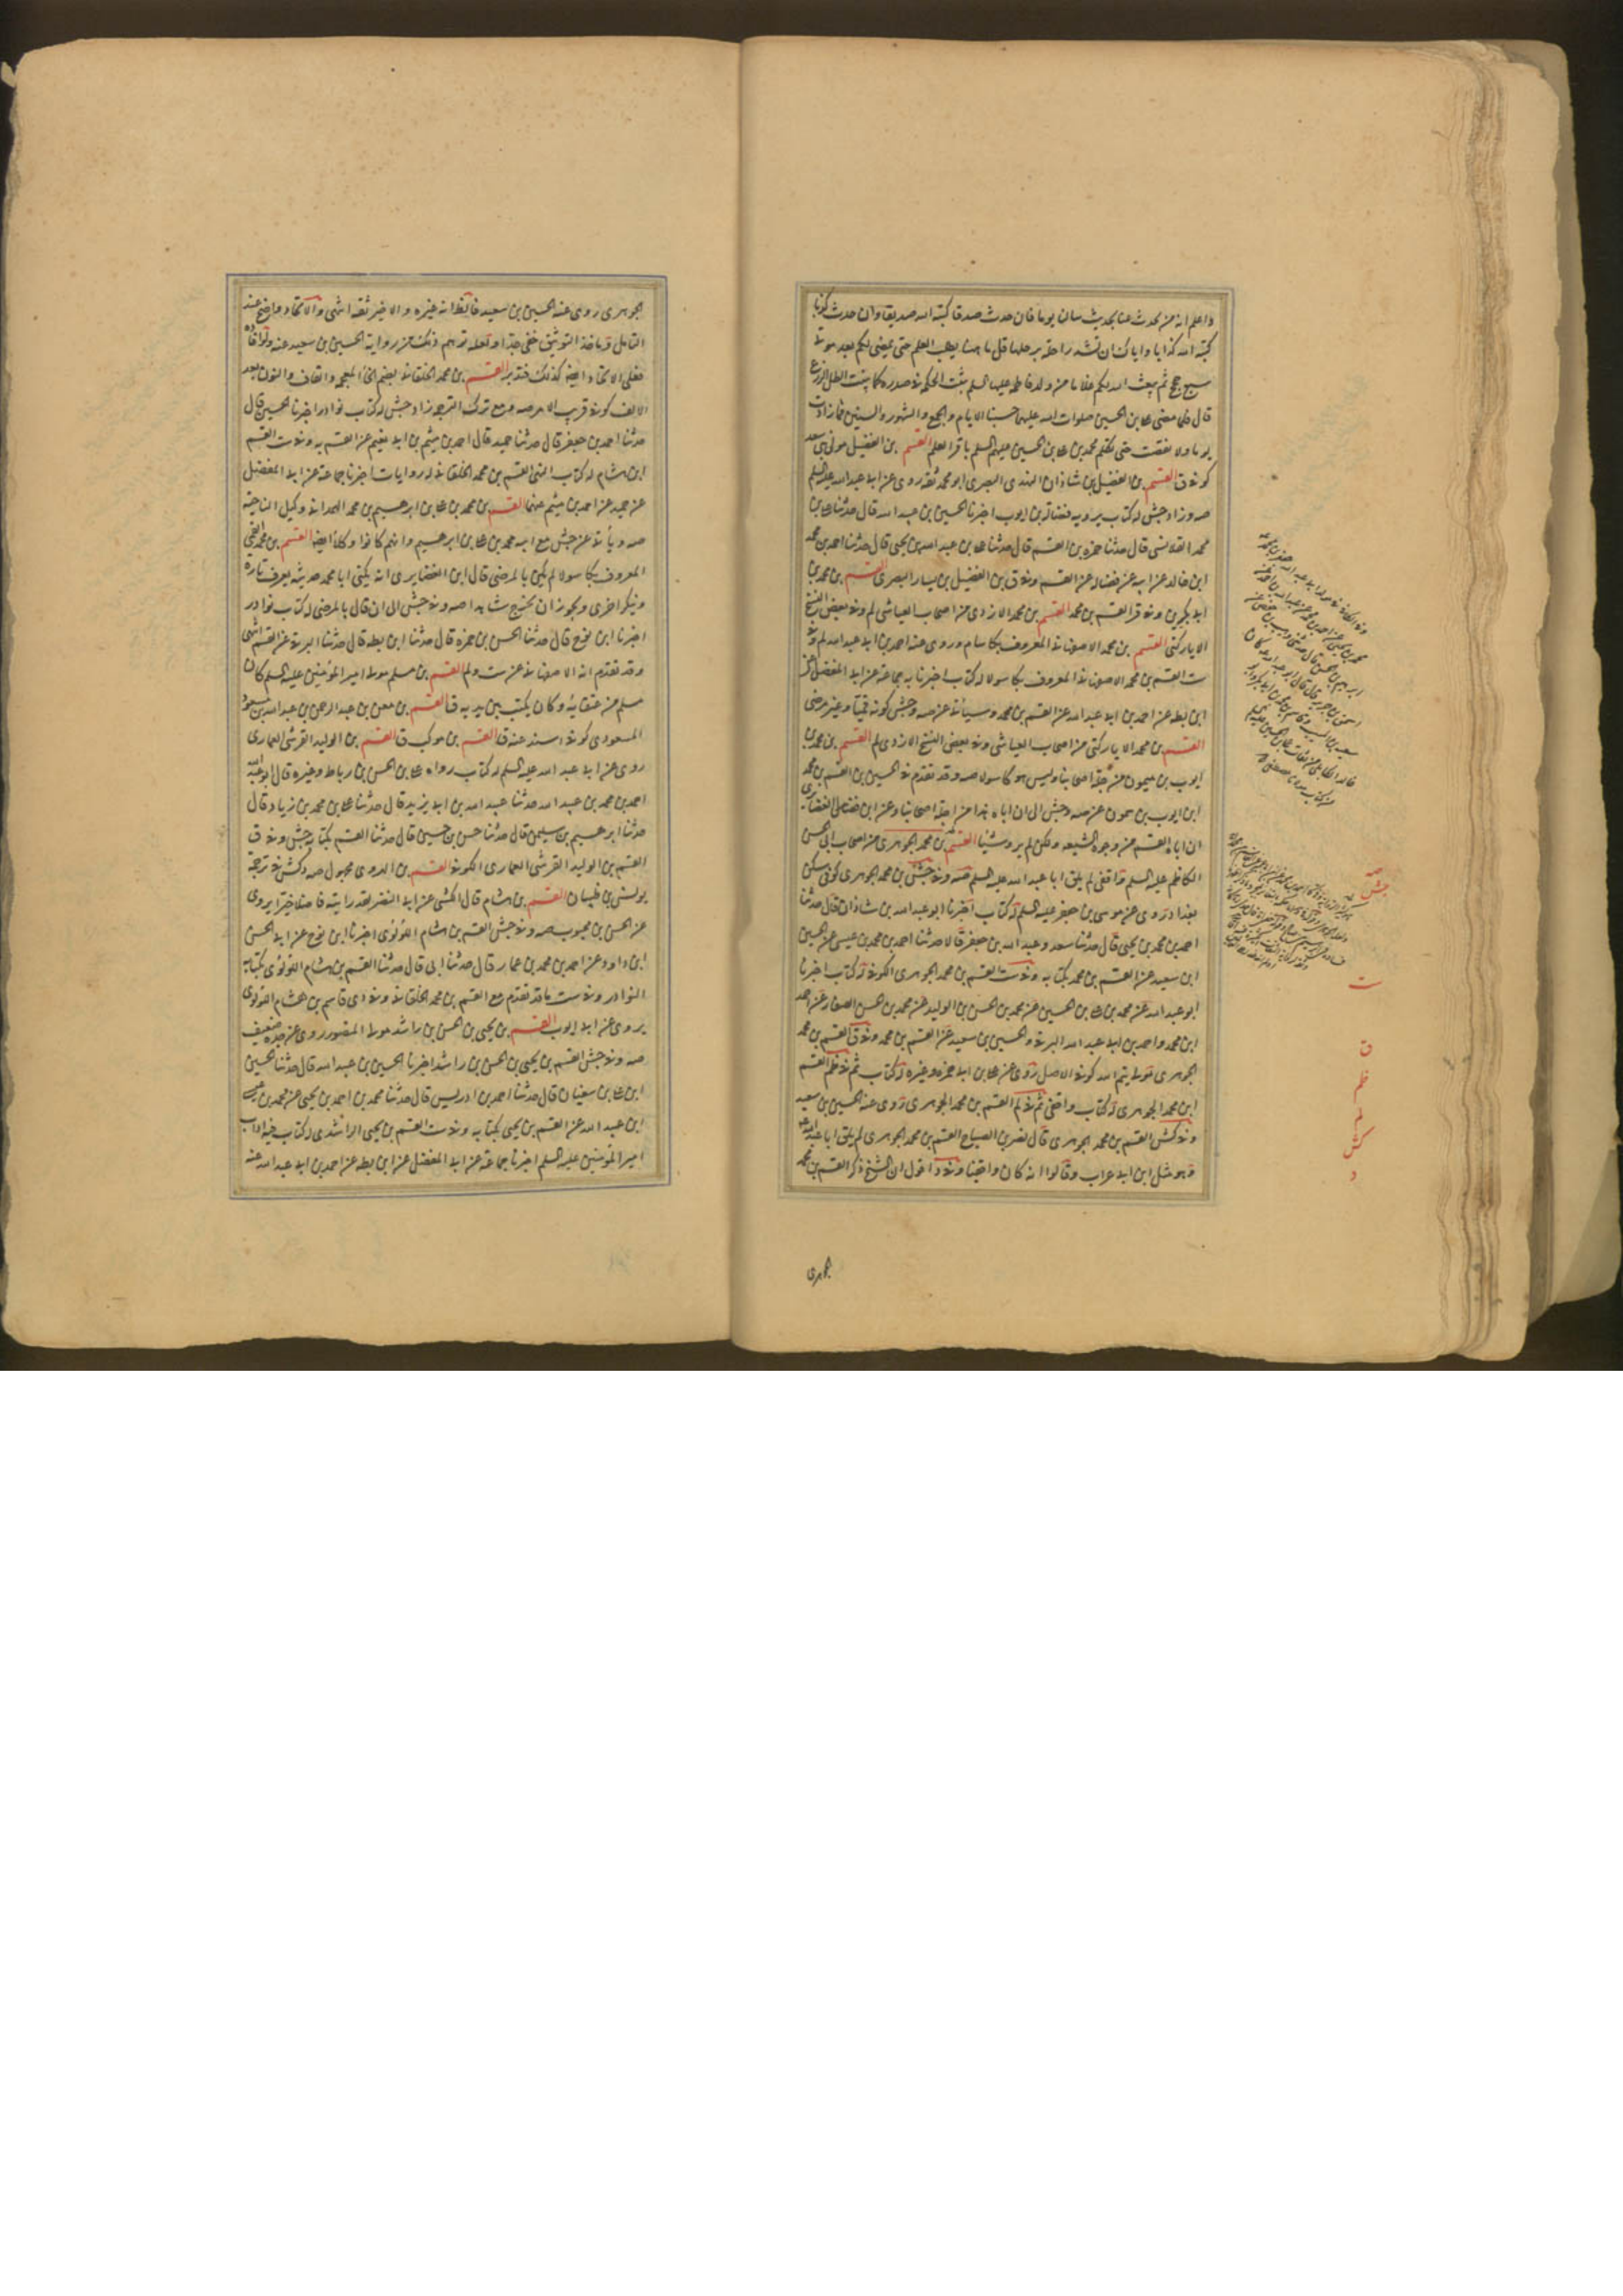 واعلم انه من يحدث عنا بحديث سألناه يوما فان حدث صدقا كتبه الله صديقا وان حدث كذبا
كتبه الله كذابا واياك ان تشد راحلة ترحلها قل ما ههنا يطلب العلم حتى يمضى لكم بعد موتى
سبع حجج ثم يبعث الله لكم غلاما من ولد فاطمة عليها السلم ينبت الحكمة فى صدره كما ينبت الطل الزرع
قال فلما مضى على بن الحسين صلوات الله عليهما حسبنا الايام والجمع والشهور والسنين فما زادت
يوما ولا نقصت حتى تكلم محمد بن على بن الحسين عليهم السلم باقر العلم القسم بن الفضيل مولى بنى سعد
كوفى ق القسم بن الفضيل بن شاذان النهدى البصرى ابو محمد ثقة روى عن ابى عبد الله عليه السلم
صه وزاد جش له كتاب يرويه فضالة بن ايوب اخبرنا الحسين بن عبد الله قال حدثنا على بن
محمد القلانسى قال حدثنا حمزة بن القسم قال حدثنا على بن عبد الله بن يحيى قال حدثنا احمد بن محمد
ابن خالد عن ابيه عن فضالة عن القسم وفى ق بن الفضيل بن يسار البصرى القسم بن محمد بن
ابى بكر ين وفى قر القسم بن محمد القسم بن محمد الازدى من اصحاب العياشى لم وفى بعض النسخ
الاياركثى القسم بن محمد الاصفهانى المعروف بكاسام وروى عنه احمد بن ابى عبد الله لم وفى
ست القسم بن محمد الاصفهانى المعروف بكاسولا له كتاب اخبرنا به جماعة عن ابى المفضل عن
ابن بطة عن احمد بن ابى عبد الله عن القسم بن محمد وسيأتى عن صه وجش كونه قميا وغير مرضى
القسم بن محمد الاياركثى من اصحاب العياشى وفى بعض النسخ الازدى لم القسم بن محمد بن
ايوب بن ميمون من جلة اصحابنا وليس هو كاسولا صه وقد تقدم فى الحسين بن القسم بن محمد
ابن ايوب بن شمون عن صه وجش الى ان اباه هذا من اجلة اصحابنا وعن ابن الغضايرى
ان اباه القسم من وجوه الشيعة ولكن لم يرو شيئا القسم بن محمد الجوهرى من اصحاب ابى الحسن
الكاظم عليه السلم واقفى لم يلق ابا عبد الله عليه السلم صه وفى جش بن محمد الجوهرى كوفى سكن
بغداد روى عن موسى بن جعفر عليه السلم له كتاب اخبرنا ابو عبد الله بن شاذان قال حدثنا
احمد بن محمد بن يحيى قال حدثنا سعد وعبد الله بن جعفر قالا حدثنا احمد بن محمد بن عيسى عن الحسين
ابن سعيد عن القسم بن محمد بكتابه وفى ست القسم بن محمد الجوهرى الكوفى له كتاب اخبرنا
ابو عبد الله عن محمد بن على بن الحسين عن محمد بن الحسن بن الوليد عن محمد بن الحسن الصفار عن احمد
ابن محمد واحمد بن ابى عبد الله البرقى والحسين بن سعيد عن القسم بن محمد وفى ق القسم بن محمد
الجوهرى مولى تيم الله كوفى الاصل روى عن على بن ابى حمزة وغيره له كتاب ثم فى ظم القسم
ابن محمد الجوهرى له كتاب واقفى ثم فى لم القسم بن محمد الجوهرى روى عنه الحسين بن سعيد
وفى كش القسم بن محمد الجوهرى قال نصر بن الصباح القسم بن محمد الجوهرى لم يلق ابا عبد الله
وهو مثل ابن ابى غراب وقالوا انه كان واقفيا وفى د اقول ان الشيخ ذكر القسم بن محمد
جوهرى
صه
جش
ست
ق
ظم
لم
كش
د
الجوهرى روى عنه الحسين بن سعيد فالظ انه غيره والاخير ثقة انتهى والاتحاد واضح عند
التأمل وماخذ التوثيق خفى جدا ولعله توهم ذلك من رواية الحسين بن سعيد عنه
فعلى الاتحاد ايضا كذلك فتدبر القسم بن محمد الخلقانى بضم الخاء المعجمة والقاف والنون بعد
الالف كوفى قريب الامر صه مع ترك الترجمة زاد جش له كتاب نوادر اخبرنا الحسين قال
حدثنا احمد بن جعفر قال حدثنا حميد قال احمد بن ميثم بن ابى نعيم عن القسم به وفى ست القسم
ابن هشام له كتاب القسم بن محمد الخلقانى له روايات اخبرنا جماعة عن ابى المفضل
عن حميد عن احمد بن ميثم عنهما القسم بن محمد بن على بن ابرهيم بن محمد الهمدانى وكيل الناحية
صه ويأتى عن جش مع ابيه محمد بن على بن ابرهيم وانهم كانوا وكلاء ايضا القسم بن محمد القمى
المعروف بكاسولا لم يكن بالمرضى قال ابن الغضايرى انه يكنى ابا محمد حديثه يعرف تارة
وينكر اخرى ويجوز ان يخرج شاهدا صه وفى جش الى ان قال بالمرضى له كتاب نوادر
اخبرنا ابن نوح قال حدثنا الحسن بن حمزة قال حدثنا ابن بطة قال حدثنا البرقى عن القسم انتهى
وقد تقدم انه الاصفهانى عن ست ولم القسم بن مسلم مولى امير المؤمنين عليه السلم كان
مسلم من عتقائه وكان يكتب بين يديه ق القسم بن معن بن عبد الرحمن بن عبد الله بن مسعود
المسعودى كوفى اسند عنه ق القسم بن موكب ق القسم بن الوليد القرشى العمارى
روى عن ابى عبد الله عليه السلم له كتاب رواه على بن الحسن بن رباط وغيره قال ابو عبد الله
احمد بن محمد بن عبد الله حدثنا عبد الله بن ابى يزيد قال حدثنا على بن محمد بن زياد قال
حدثنا ابرهيم بن سليمن قال حدثنا حسن بن حسين قال حدثنا القسم بكتابه جش وفى ق
القسم بن الوليد القرشى العمارى الكوفى القسم بن الهروى مجهول صه وكش فى ترجمة
يونس بن ظبيان القسم بن هشام قال الكشى عن ابى النضر لقد رايته فاضلا خيرا يروى
عن الحسن بن محبوب صه وفى جش القسم بن هشام اللؤلؤى اخبرنا ابن نوح عن ابى الحسن
ابن داود عن احمد بن محمد بن عمار قال حدثنا ابى قال حدثنا القسم بن هشام اللؤلؤى بكتابه
النوادر وفى ست ما قد تقدم مع القسم بن محمد الخلقانى وفى دى قاسم بن هشام اللؤلؤى
يروى عن ابى ايوب القسم بن يحيى بن الحسن بن راشد مولى المنصور روى عن جده ضعيف
صه وفى جش القسم بن يحيى بن الحسن بن راشد اخبرنا الحسين بن عبد الله قال حدثنا الحسين
ابن على بن سفيان قال حدثنا احمد بن ادريس قال حدثنا محمد بن احمد بن يحيى عن محمد بن عيسى
ابن عبد الله عن القسم بن يحيى بكتابه وفى ست القسم بن يحيى الراشدى له كتاب فيه اداب
امير المؤمنين عليه السلم اخبرنا جماعة عن ابى المفضل عن ابن بطة عن احمد بن ابى عبد الله عنه